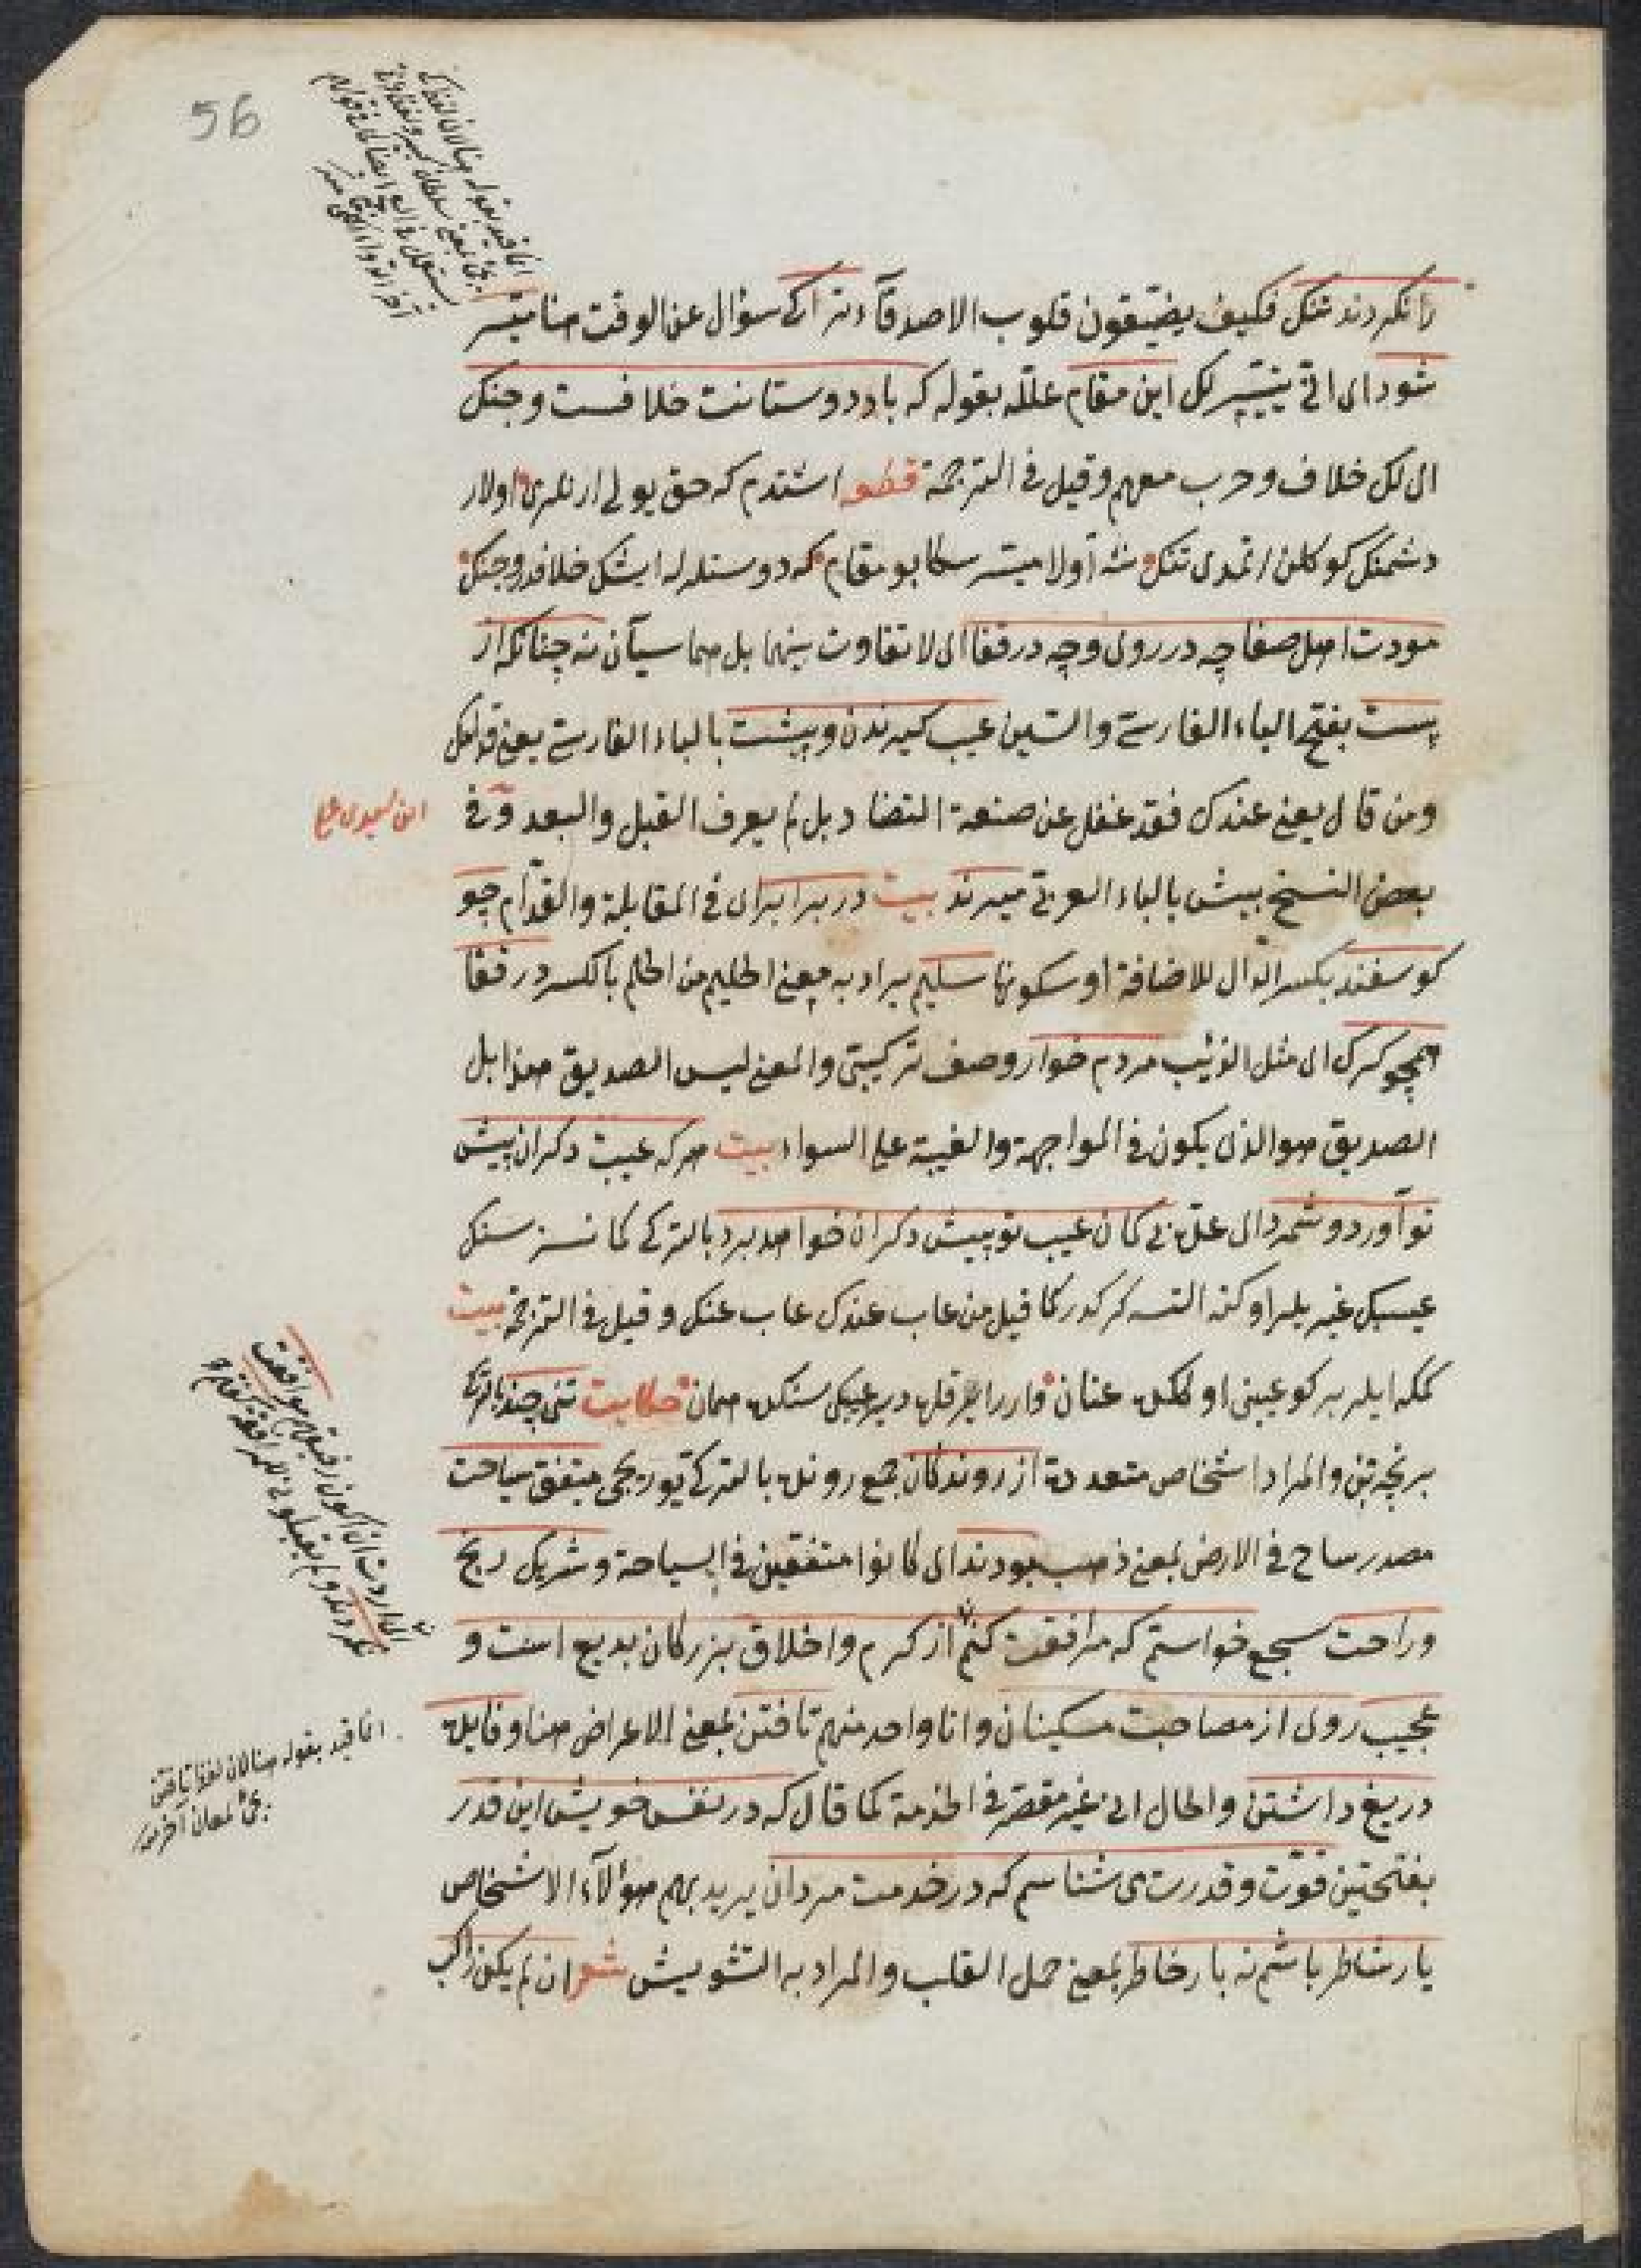 56
را نکردند تنک فکیف یضیّقون قلوب الاصدقآء ترا کی سؤال عن الوقت هنا میسّر
شود ای انّی یتیسّر لک این مقام علّله بقوله که با دوستانت خلافست و جنک
ای لک خلاف و حرب معهم و قیل فی الترجمة قطعه اشتدم که حق یولی ارنلری اولار
دشمنک کوکلن اتمدی تنک نه اولا میسّر سکا بو مقام که دوستلرله ایشک خلافدر و جنک
مودت اهل صفا چه در روی و چه در قفا ای لا تفاوت بینهما بل هما سیّان نه چنانکه از
پست بفتح الباء الفارسی والسین عیب کیرند و پیشت بالباء الفارسی یعنی قولک
ومن قال یعنی عندک فقد غفل عن صنعة التضاد بل لم یعرف القبل والبعد و فی
ابن سیدی علی
بعض النسخ بیش بالباء العربی میرند بیت در برابر ای فی المقابلة والقدّام چو
کوسفند بکسر الدال للاضافة او سکونها سلیم یراد به معنی الحلیم من الحلم بالکسر در قفا
همچو کرک ای مثل الذئب مردم خوار وصف ترکیبی والمعنی لیس الصدیق هذا بل
الصدیق هو الذی یکون فی المواجهة والغیبة علی السواء بیت هر که عیب دکران پیش
تو آورد و شمرد ای عدّ بی کمان عیب تو پیش دکران خواهد برد بالترکی کمانسز سنک
عیبیکی غیریلر اوکنه التسه کرکدر کما قیل من عاب عندک عاب عنک و قیل فی الترجمة بیت
کمکه ایلر بر کو عیبنی اوککه عنان وارر ایلر قله دیر عیبکی سنک همان حکایت تنی چند بالترکی
بر نچه تن والمراد اشخاص متعددة از روندکان جمع رونده بالترکی یوریجی متفق سیاحت
مصدر ساح فی الارض بمعنی ذهب بودند ای کانوا متفقین فی السیاحة و شریک رنج
و راحت سجع خواستم که مرافقت کنم از کرم و اخلاق بزرکان بدیع است و
عجیب روی از مصاحبت مسکینان وانا واحد منهم تافتن بمعنی الاعراض هنا و فایده
دریغ داشتن والحال انی غیر مقصّر فی الخدمة کما قال که در نفس خویش این قدر
بفتحتین قوّت و قدرت می شناسم که در خدمت مردان یرید بهم هؤلآء الاشخاص
یار شاطر باشم نه بار خاطر بمعنی حمل القلب والمراد به التشویش شعر ان لم یکن راکب
انما قید بقوله هنا لان لفظ تافتن
یجئ لمعان آخر منه